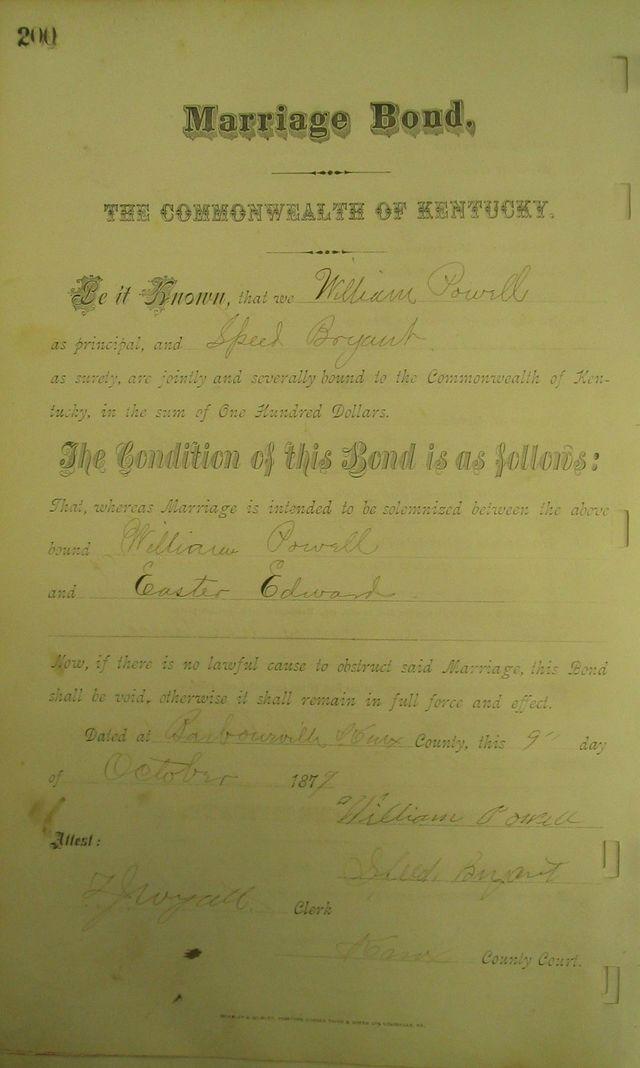 200
Marriage Bond.
THE COMMONWEALTH OF KENTUCKY.
Be it Known, that we William Powell
as principal, and Speed Bryant
as surety, are jointly and severally bound to the Commonwealth of Ken-
tucky, in the sum of One Hundred Dollars.
The Condition of this Bond is as follows:
That, whereas Marriage is intended to be solemnized between the above
bound William Powell
and Easter Edward
Now, if there is no lawful cause to obstruct said Marriage, this Bond
shall be void, otherwise it shall remain in full force and effect.
Dated at Barbourville Knox County, this 9" day
of October 1879
William Powell
Attest:
Speed Bryant
Clerk
Knox County Court.